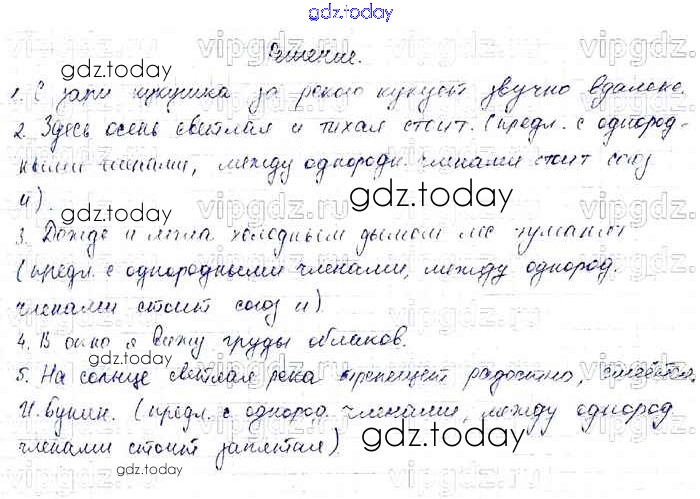 gdz.today
Решение.
1. С зари кукушка за рекою кукует звучно вдалеке.
2. Здесь осень светлая и тихая стоит. (предл. с однород-
ными членами, между однородн. членами стоит союз
и).
3. Дожди и мгла холодным дымом лес туманят
(предл. с однородными членами, между однород.
членами стоит союз и).
4. В окно я вижу груды облаков.
5. На солнце светлая река трепещет радостно, смеётся.
И. Бунин. (предл. с однород. членами, между однород
членами стоит запятая).
gdz.today
gdz.today
gdz.today
gdz.today
gdz.today
gdz.today
vipgdz.ru
vipgdz.ru
vipgdz.ru